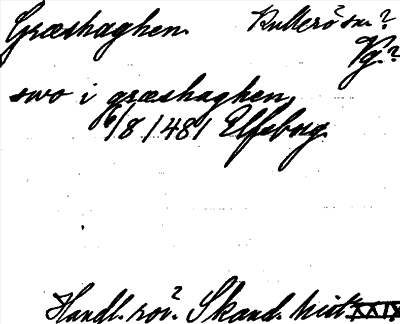 Græshaghen Kullerö sn?
Vg?
swo i græshaghen
6/8 1481 Elfsborg
Handl. rör? Skand. hist. XXIX